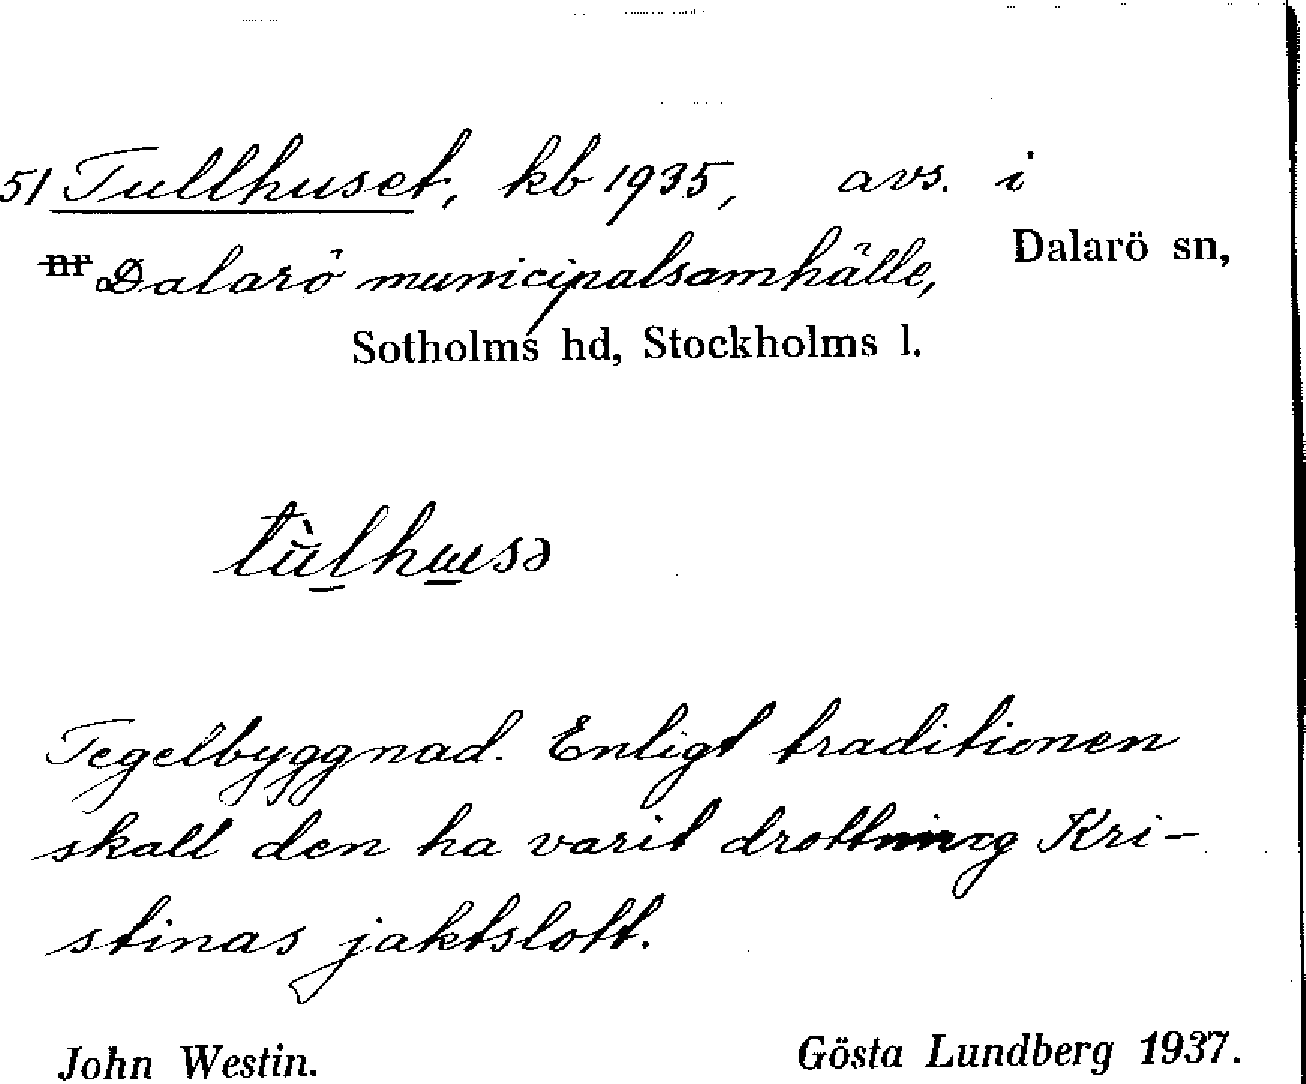 51 Tullhuset, kb 1935, avs. i
nr Dalarö municipalsamhälle, Dalarö sn,
Sotholms hd, Stockholms l.
tùlhɯsə
Tegelbyggnad. Enligt traditionen
skall den ha varit drottning Kri-
stinas jaktslott.
John Westin. Gösta Lundberg 1937.